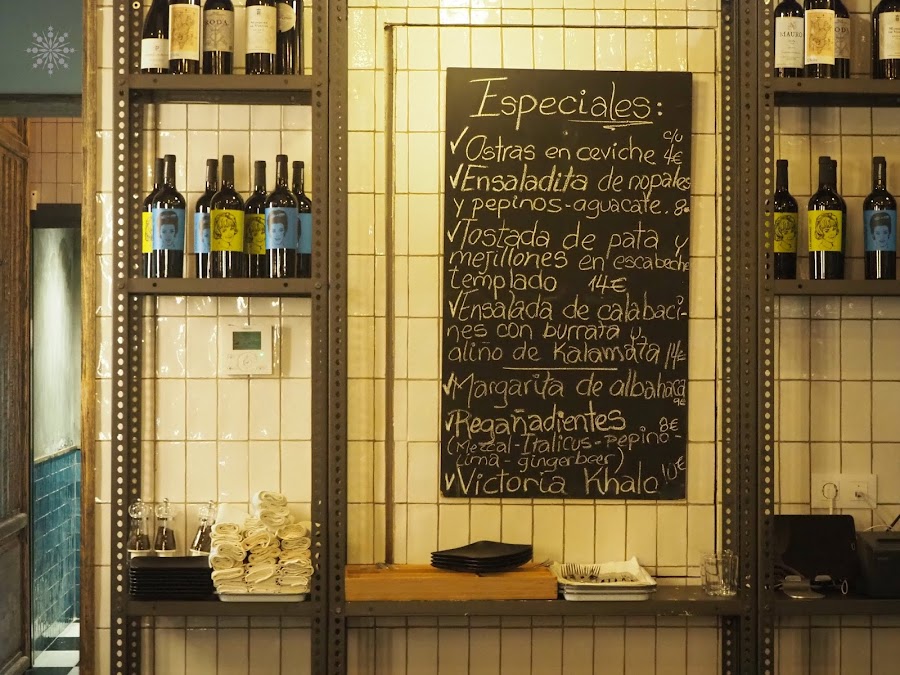 RODA
Especiales:
✓Ostras en ceviche c/u 4€
✓Ensaladita de nopales
y pepinos-aguacate. 8€
✓Tostada de pata y
mejillones en escabeche
templado 14€
✓Ensalada de calabaci-
nes con burrata y
aliño de Kalamata 14€
✓Margarita de albahaca
9€
✓Regañadientes 8€
(Mezcal-Italicus-pepino-
lima-gingerbeer)
✓Victoria Khalo 10€